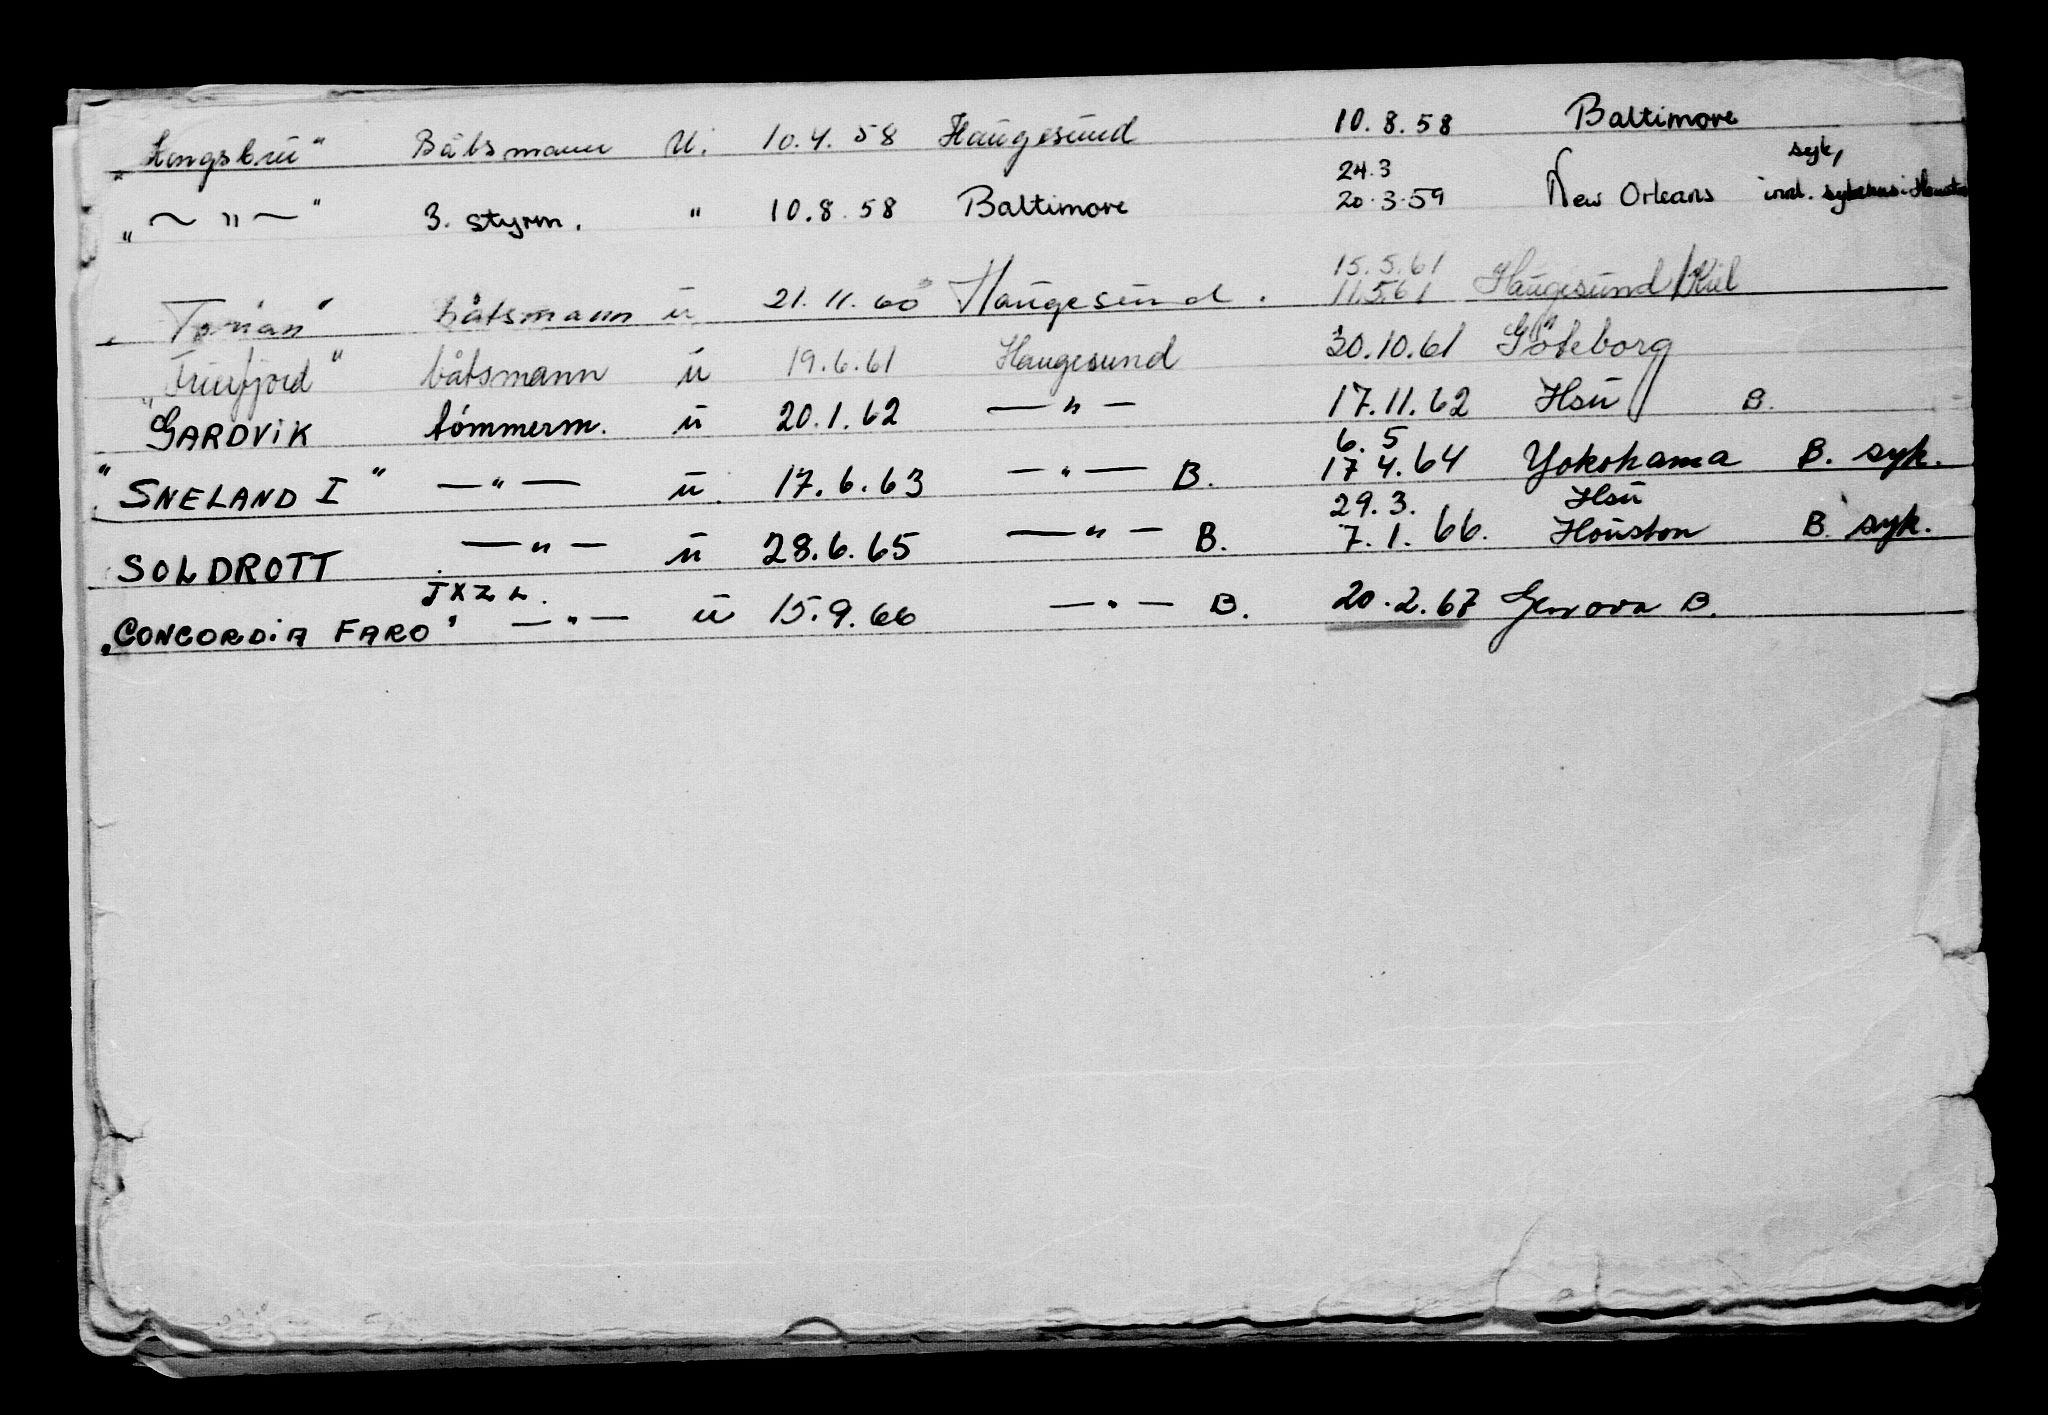 "Kongsbru" Båtsmann U. 10.4.58 Haugesund 10.8.58 Baltimore
"~ " ~" 3. styrm. " 10.8.58 Baltimore 24.3 20.3.59 New Orleans syk, innl. sykehus i Houston
"Torian" båtsmann u 21.11.60 Haugesund. 15.5.61 11.5.61 Haugesund/Kiel
"Frierfjord" båtsmann u 19.6.61 Haugesund 30.10.61 Göteborg
GARDVIK tömmerm. u 20.1.62 — " — 17.11.62 Hsu B.
"SNELAND I" — " — u. 17.6.63 — " — B. 6.5 17 4.64 Yokohama B. syk.
SOLDROTT — " — u 28.6.65 — " — B. 29.3. 7.1.66. Hsu Houston B. syk.
JXZL.
"CONCORDIA FARO" — " — u 15.9.66 — " — B. 20.2.67 Genova B.